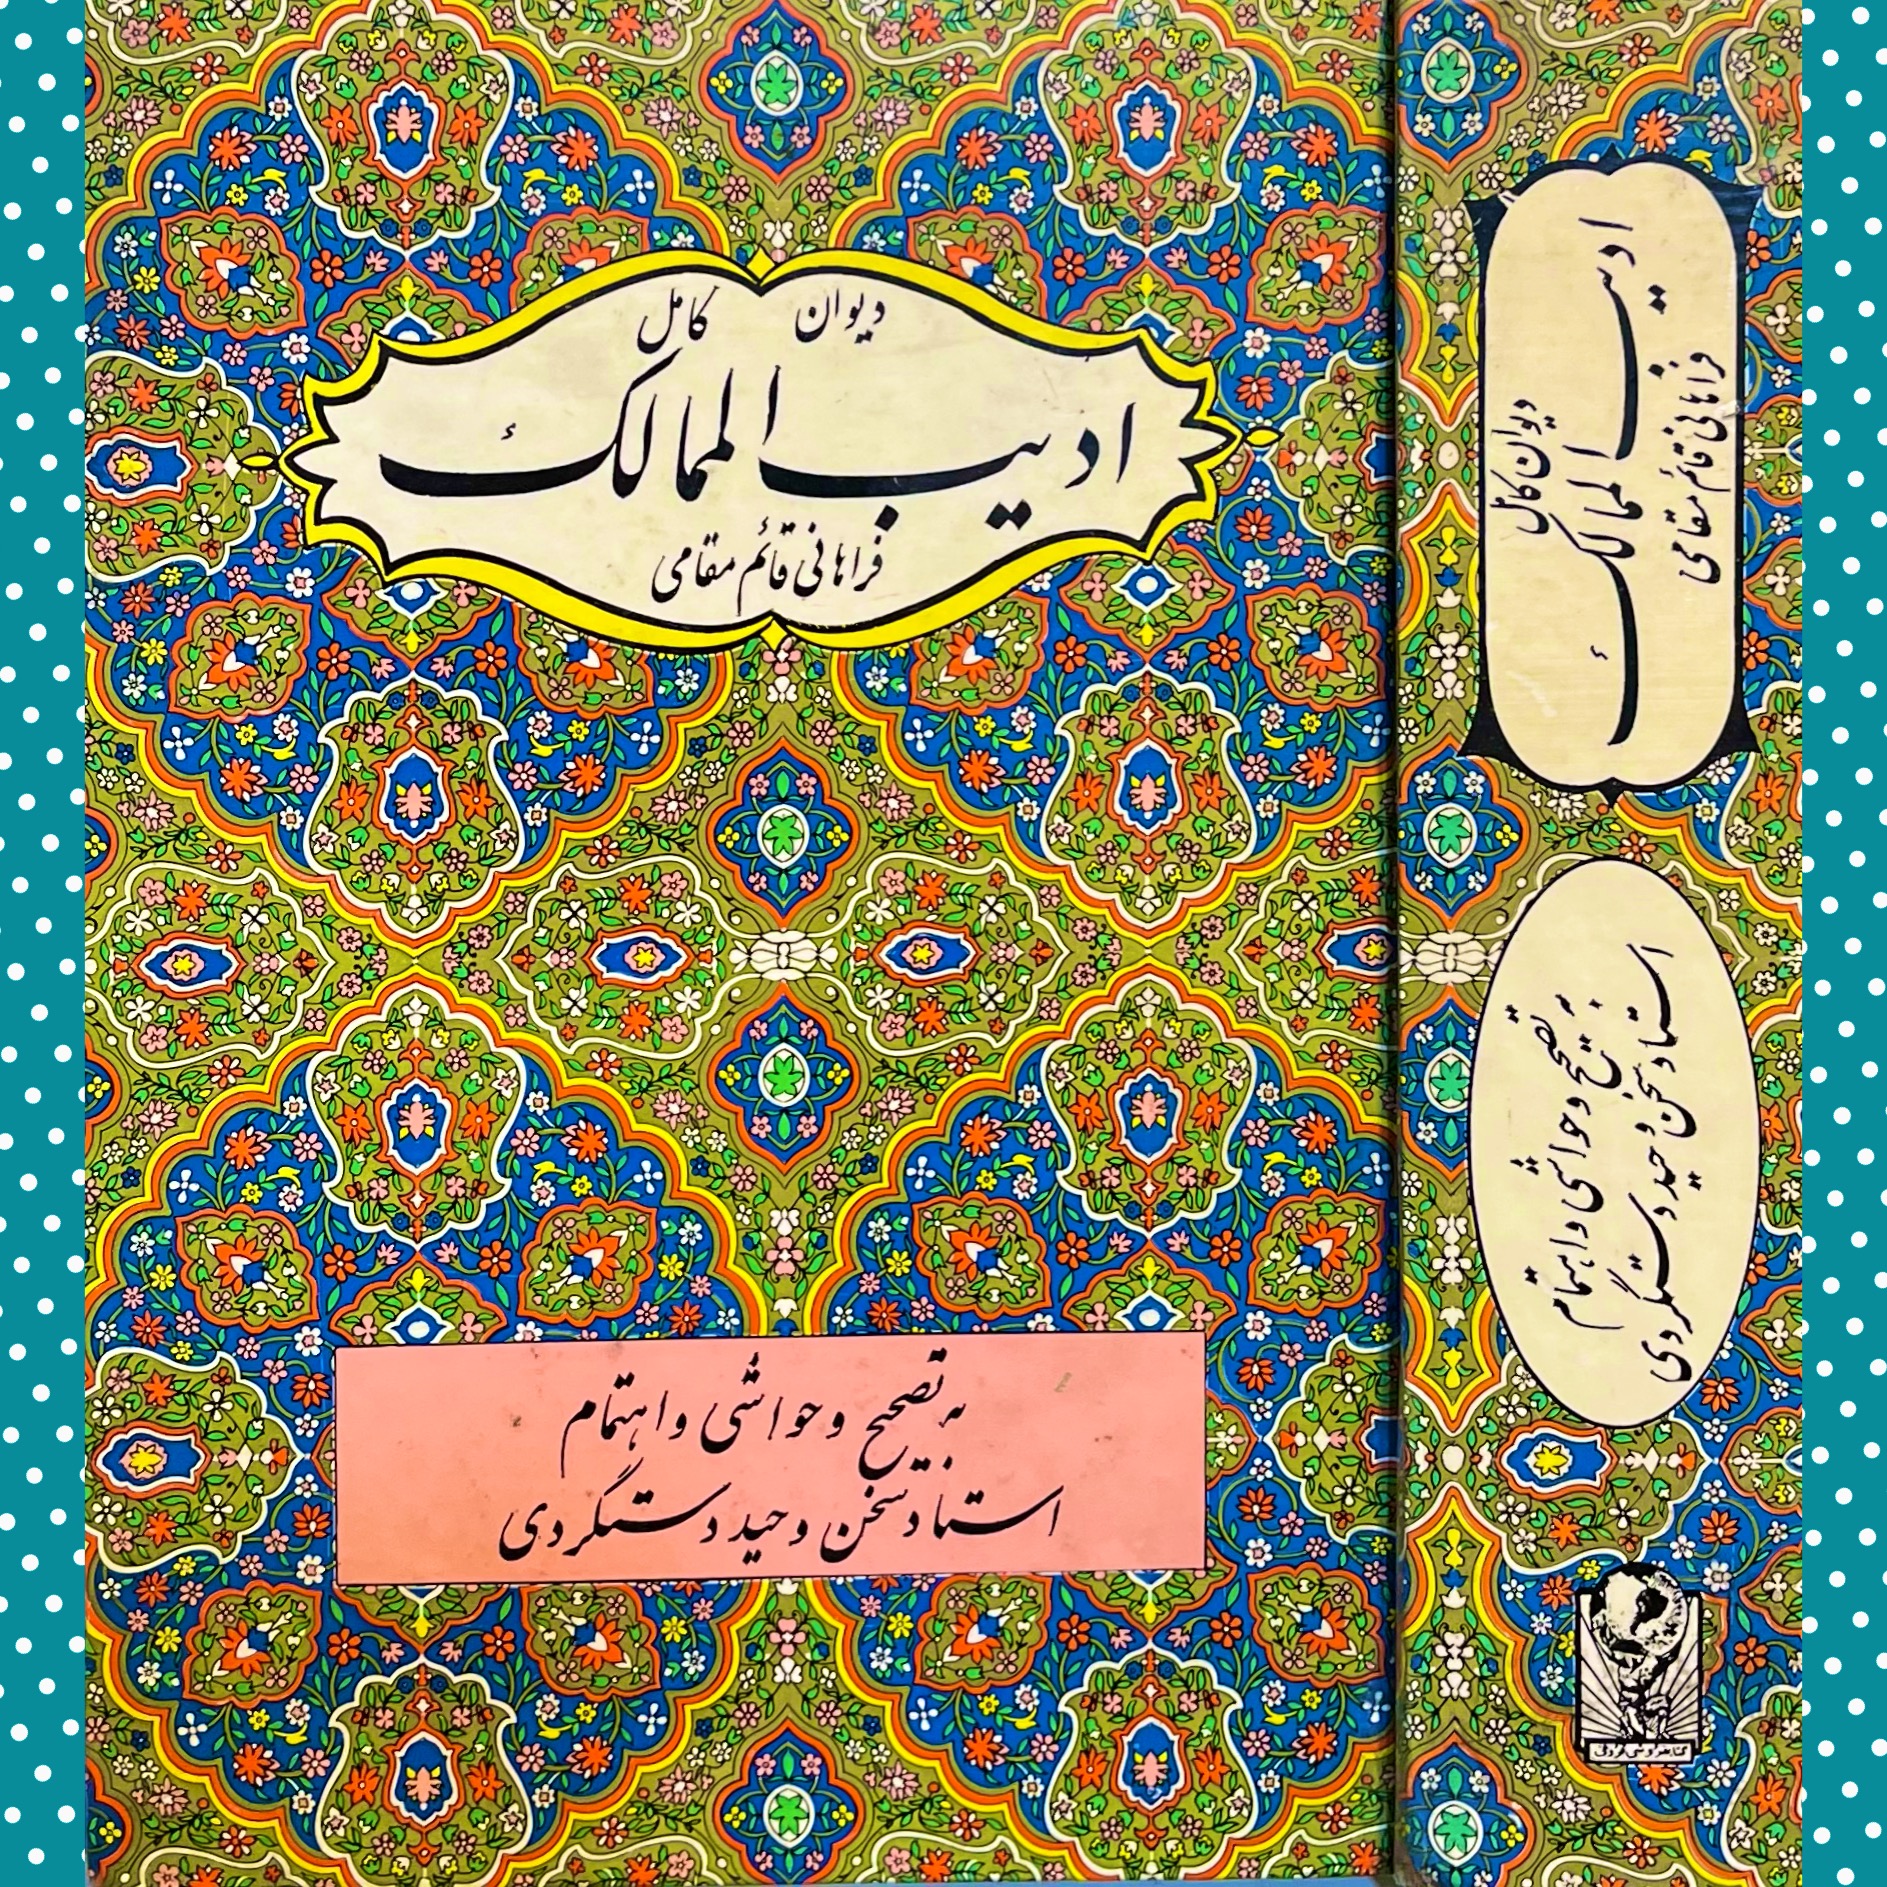 دیوان کامل
ادیب الممالک
فراهانی قائم مقامی
به تصحیح و حواشی و اهتمام
استاد سخن وحید دستگردی
دیوان کامل
ادیب الممالک
فراهانی قائم مقامی
تصحیح و حواشی و اهتمام
به
استاد سخن وحید دستگردی
کتابفروشی فروغی